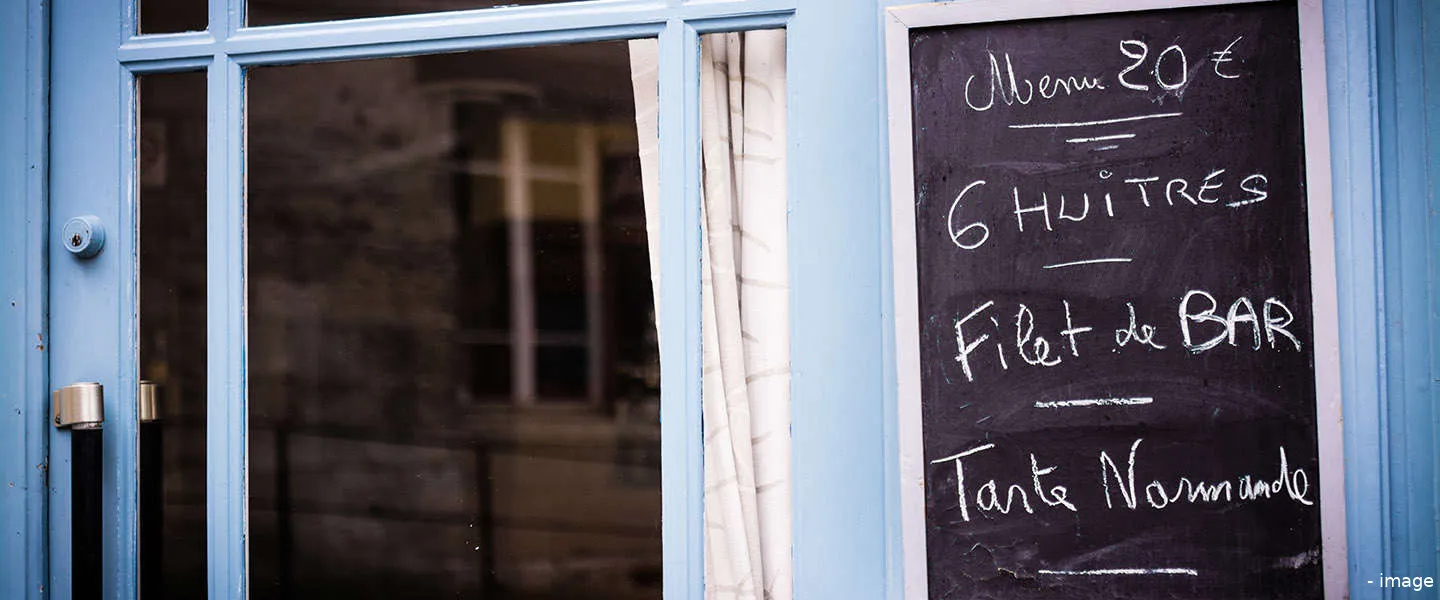 Menu 20 €
6 HUiTRES
Filet de BAR
Tarte Normande
- image